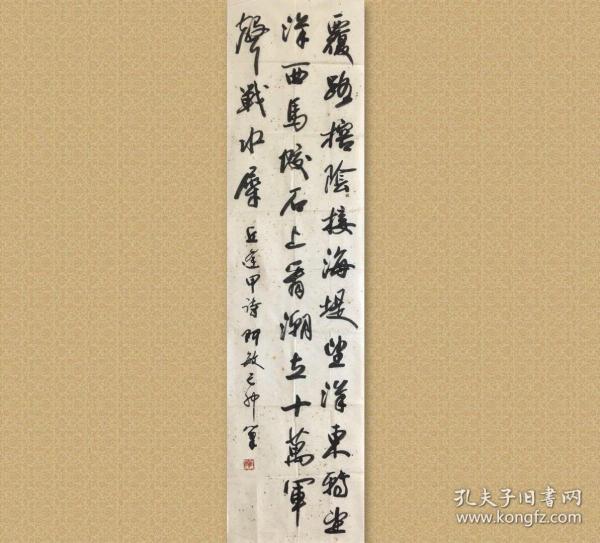 覆路榕陰接海堤望洋東轉望
洋西馬蛟石上看潮立十萬軍
聲戰水犀
丘逢甲詩 阿敏己卯
孔夫子旧书网
www.kongfz.com